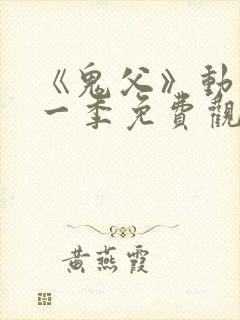 《鬼父》動
一季免費觀
黃燕霞